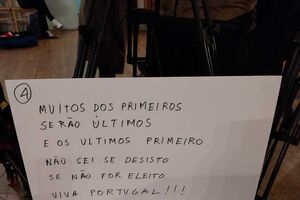 4
MUITOS DOS PRIMEIROS
SERÃO ÚLTIMOS
E OS ULTIMOS PRIMEIRO
NÃO SEI SE DESISTO
SE NÃO FOR ELEITO
VIVA PORTUGAL!!!